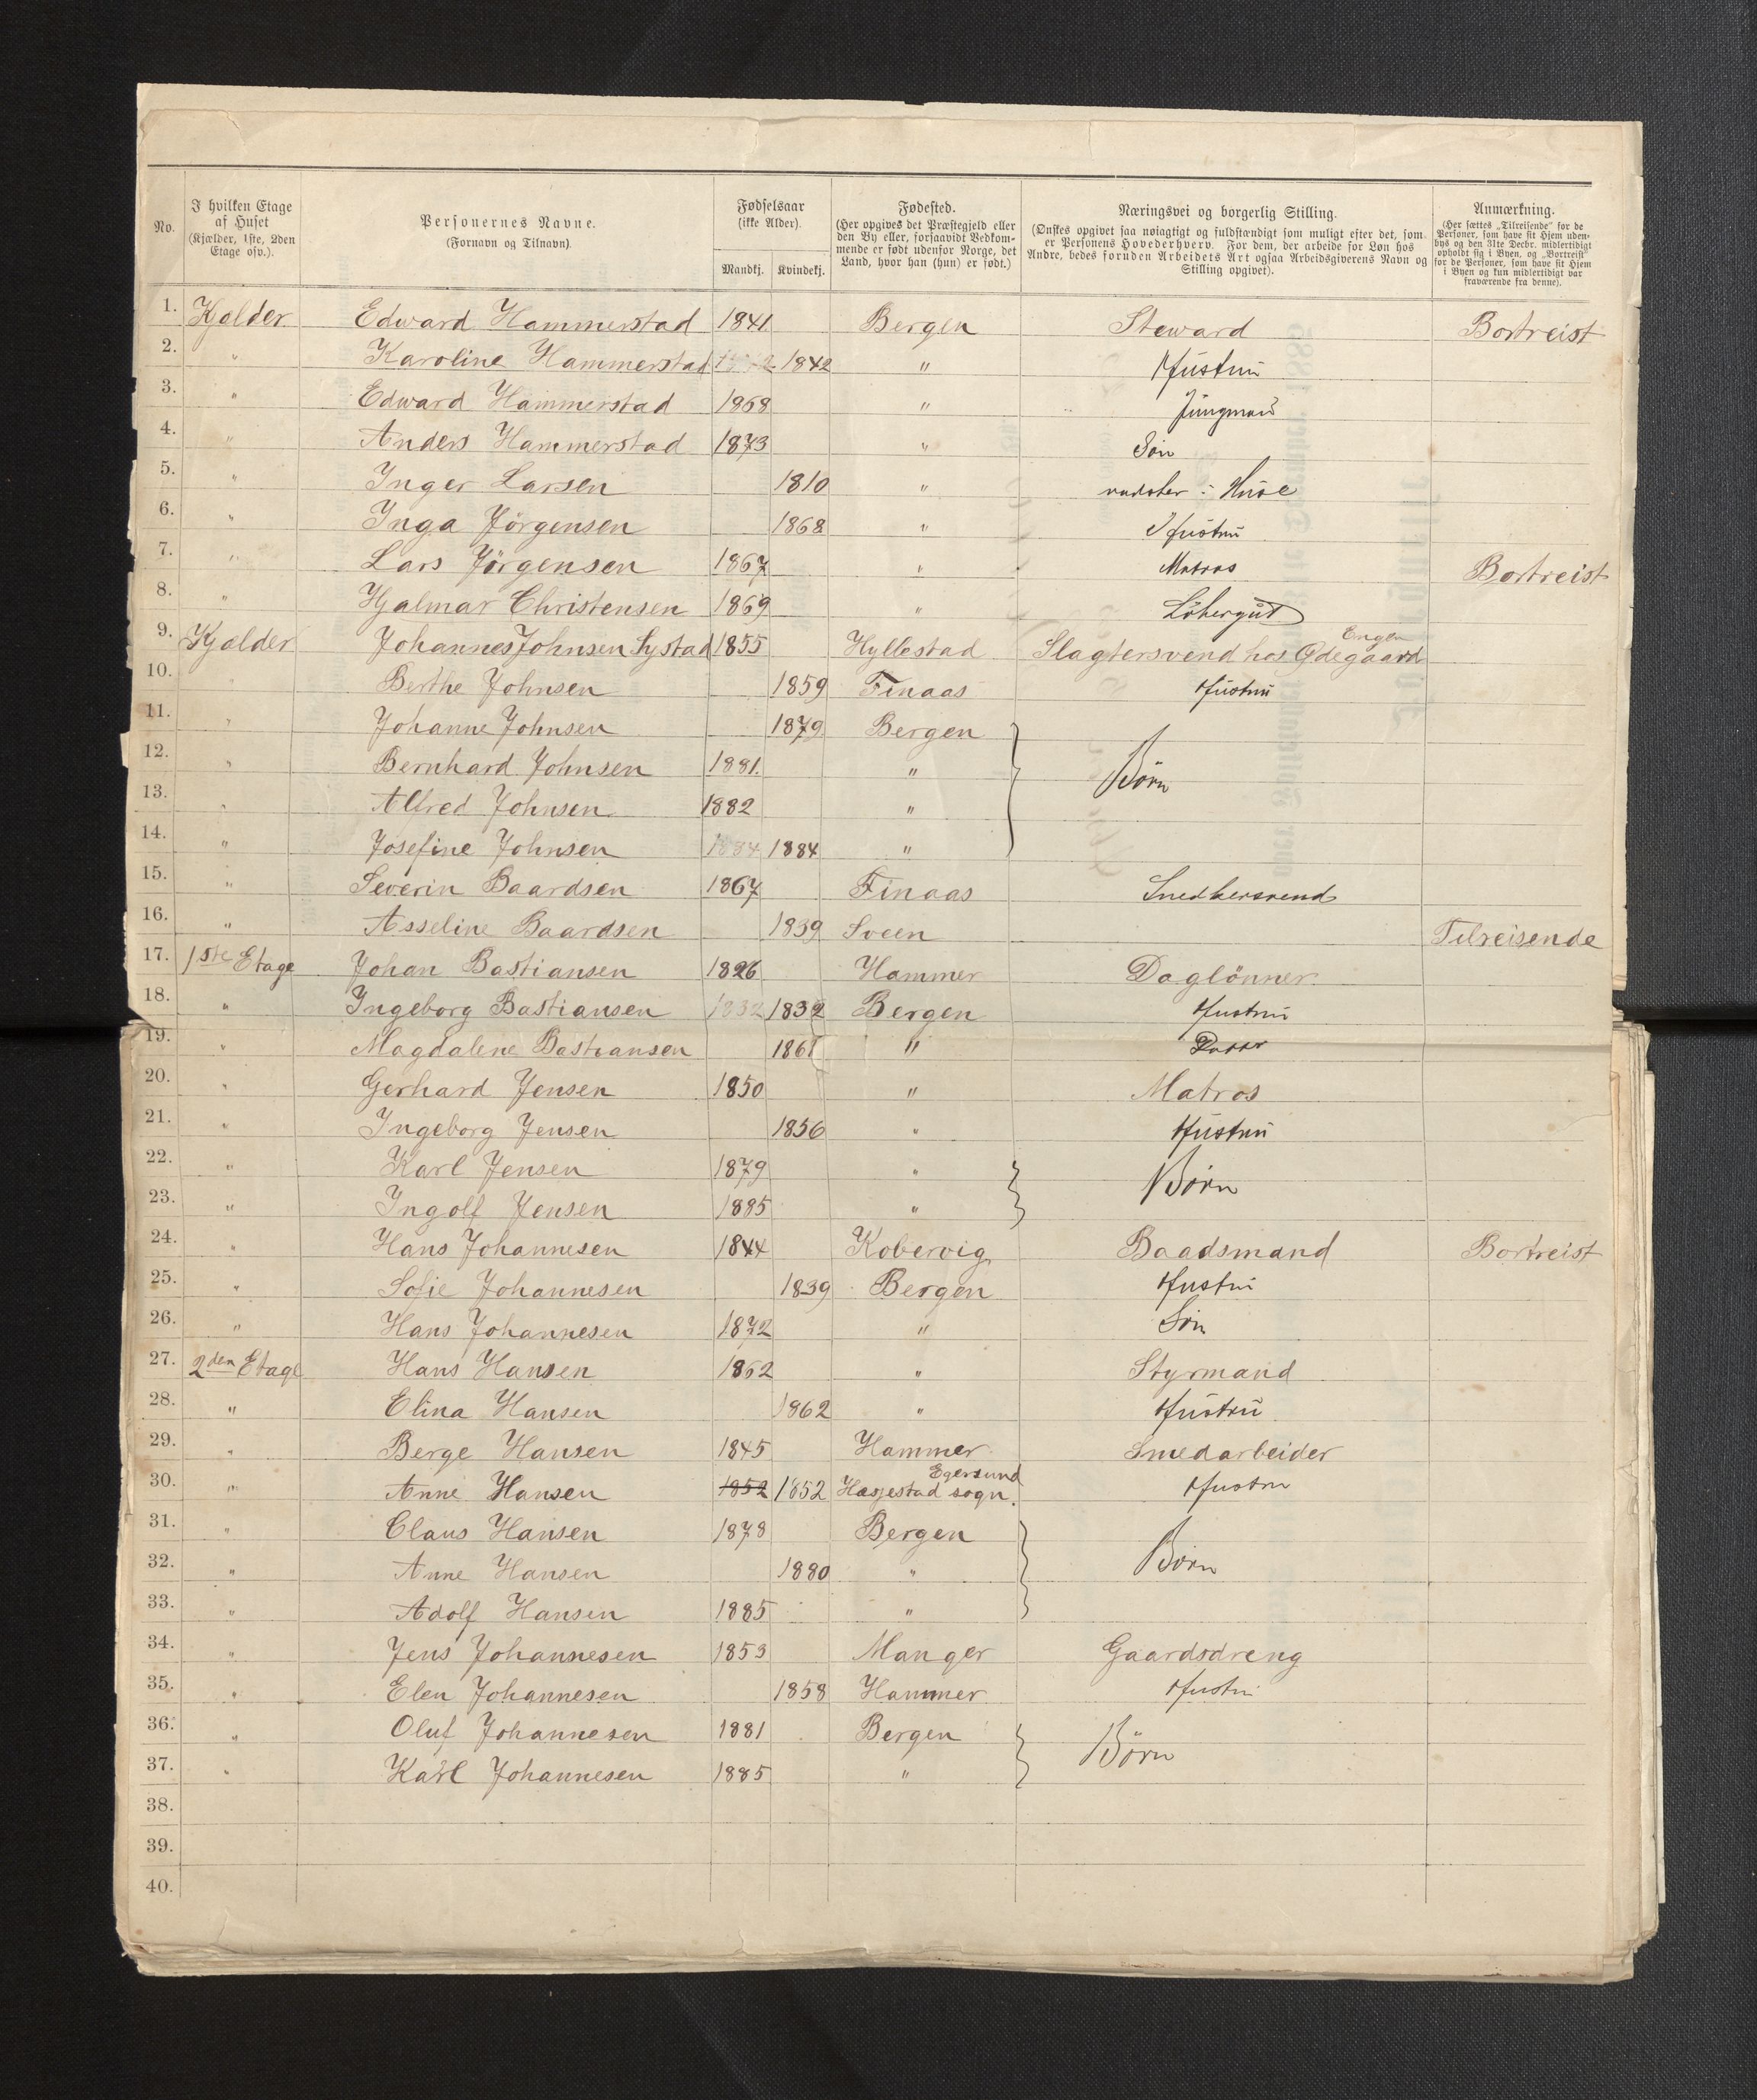 No. I hvilken Etage af Huset (Kjælder, 1ste, 2den Etage osv.). Personernes Navne. (Fornavn og Tilnavn). Fødselsaar (ikke Alder). Mandkj. Kvindekj. Fødested. (Her opgives det Præstegjeld eller den By eller, forsaavidt Vedkommende er født udenfor Norge, det Land, hvor han (hun) er født.) Næringsvei og borgerlig Stilling. (Ønskes opgivet saa nøiagtigt og fuldstændigt som muligt efter det, som er Personens Hovederhverv. For dem, der arbeide for Løn hos Andre, bedes foruden Arbeidets Art ogsaa Arbeidsgiverens Navn og Stilling opgivet). Anmærkning. (Her sættes „Tilreisende" for de Personer, som have sit Hjem udenbys og den 31te Decbr. midlertidigt opholdt sig i Byen, og „Bortreist" for de Personer, som have sit Hjem i Byen og kun midlertidigt var fraværende fra denne).
1. Kjelder Edward Hammerstad 1841 Bergen Steward Bortreist
2. " Karoline Hammerstad 1842 " Hustru
3. " Edward Hammerstad 1868 " Jungmand
4. " Anders Hammerstad 1873 " Søn
5. " Inger Larsen 1810 " Huse
6. " Inga Jörgensen 1868 " Hustru
7. " Lars Jörgensen 1867 " Matros Bortreist
8. " Hjalmar Christensen 1869 " Löbergut
9. Kjelder Johannes Johnsen Systad 1855 Hyllestad Slagtersvend hos Engen Ødegaard
10. " Berthe Johnsen 1859 Finaas Hustru
11. " Johanne Johnsen 1879 Bergen
12. " Bernhard Johnsen 1881. " Börn
13. " Alfred Johnsen 1882 "
14. " Josefine Johnsen 1884 1884 "
15. " Severin Baardsen 1867 Finaas Snedkersvend
16. " Asseline Baardsen 1839 Sveen Tilreisende
17. 1ste Etage Johan Bastiansen 1826 Hammer Daglönner
18. " Ingeborg Bastiansen 1832 1832 Bergen Hustru
19. " Magdalene Bastiansen 1861 "
20. " Gerhard Jensen 1850 " Matros
21. " Ingeborg Jensen 1856 " Hustru
22. " Karl Jensen 1879 " Börn
23. " Ingolf Jensen 1885 "
24. " Hans Johannesen 1844 Kobervig Baadsmand Bortreist
25. " Sofie Johannesen 1839 Bergen Hustru
26. " Hans Johannesen 1872 " Sön
27. 2den Etage Hans Hansen 1862 " Styrmand
28. " Elina Hansen 1862 " Hustru
29. " Berge Hansen 1845 Hammer Smedarbeider
30. " Anne Hansen 1852 1852 Egersund Hæjestad sogn. Hustru
31. " Claus Hansen 1878 Bergen
32. " Anne Hansen 1880 " Börn
33. " Adolf Hansen 1885 "
34. " Jens Johannesen 1853 Manger Gaardsdreng
35. " Elen Johannesen 1858 Hammer Hustru
36. " Oluf Johannesen 1881 Bergen Börn
37. " Karl Johannesen 1885 "
38.
39.
40.